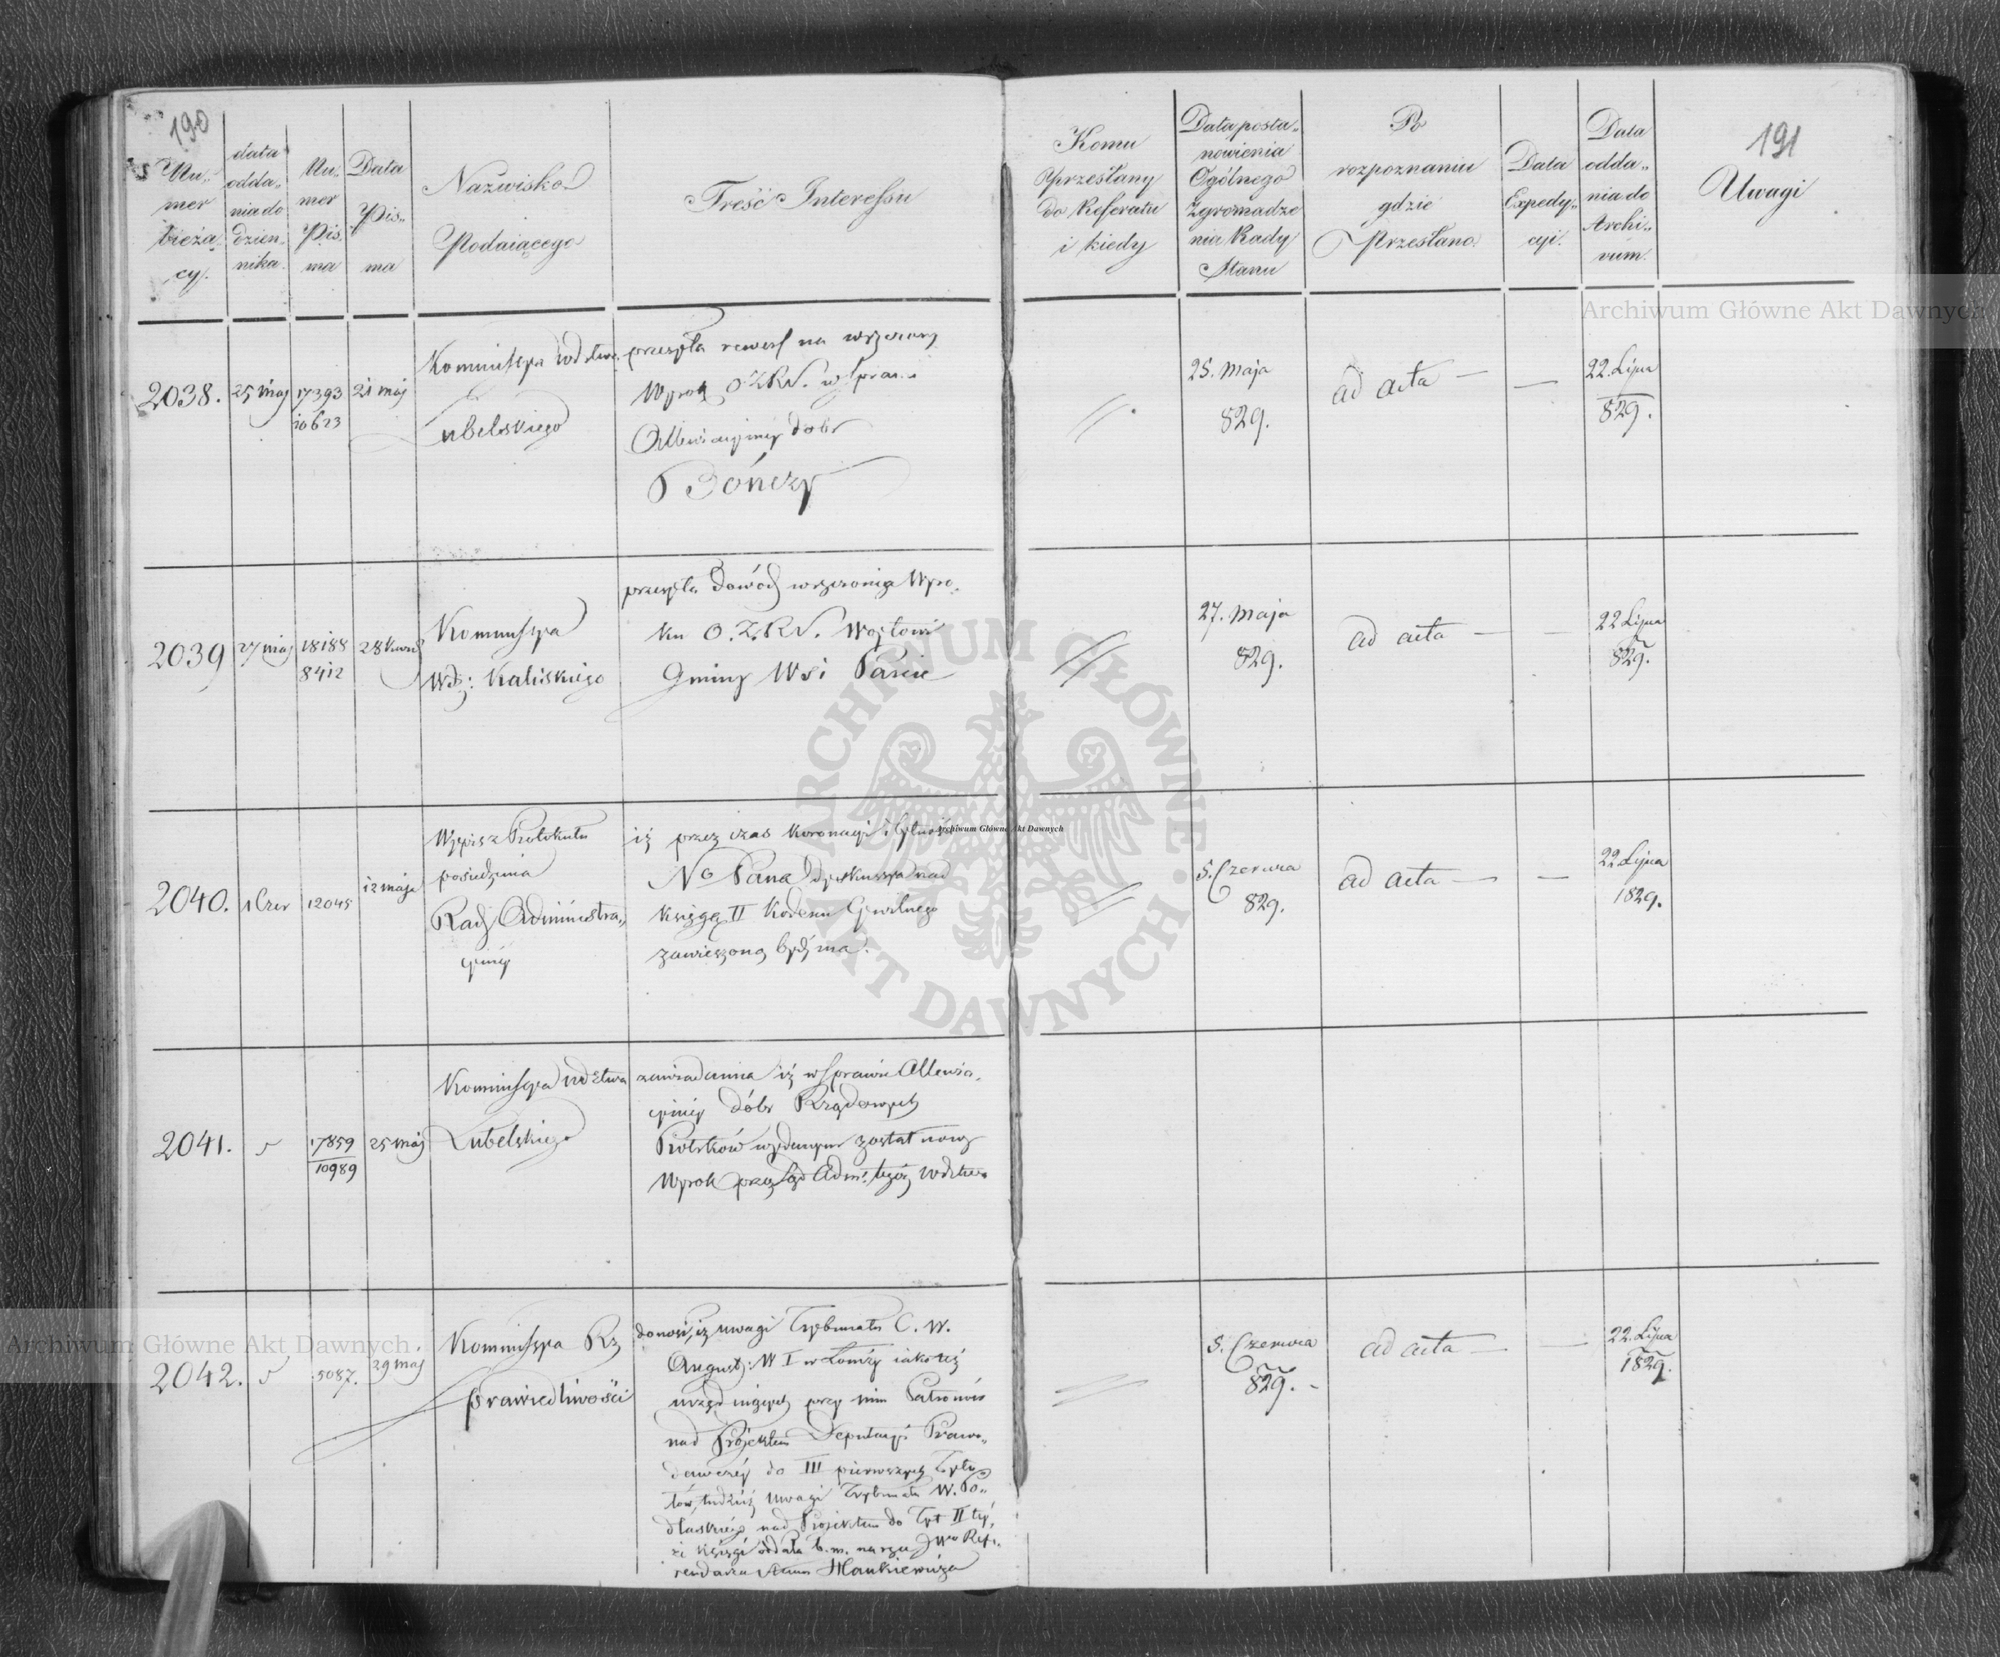 190
Nu-
mer
bieżą-
cy.
data
odda-
nia do
dzien-
nika.
Nu-
mer
Pis-
ma
Data
Pis-
ma
Nazwisko
Podaiącego
Treść Interessu
Komu
Przesłany
do Referatu
i kiedy
Data posta-
nowienia
Ogólnego
Zgromadze
nia Rady
Stanu
Po
rozpoznaniu
gdzie
Przesłano
Data
Expedy-
cyi.
Data
odda-
nia do
Archi-
vum.
191
Uwagi
2038.
25 Maj
17393
10623
21 Maj
Kommissya Wdztwa
Lubelskiego
przesyła rewers na wręczony
Wyrok O.Z.R.S. w spra-
Allewiacyiney dobr
Bończy
25. Maja
829.
ad acta —
—
22. Lipca
829.
2039
27 Maj
18188
8412
28 Kwie
Kommissya
Wdz: Kaliskiego
przesyła dowód wręczenia Wyro-
ku O.Z.R.S. Wójtowi
Gminy Wsi
27. Maja
829.
ad acta —
—
22 Lipca
829.
2040.
1 Czer
12045
12 Maja
Wypis z Protokułu
posiedzenia
Rady Administra-
cyiney
iż przez czas Koronacyi i bytności
No Pana dyskussya nad
Księgą II Kodexu Cywilnego
zawieszoną bydź ma.
5. Czerwca
829.
ad acta —
—
22 Lipca
1829.
2041.
17859
10989
25 Maj
Kommissya Wdztwa
Lubelskiego
zawiadamia iż w sprawie Allewia-
cyiney dóbr Rządowych
wydanym został nowy
Wyrok przez Sąd Adm: tegoż Wdztwa
2042.
5087.
29 Maj
Kommissya Rz
Sprawiedliwości
donosi, iż uwagi Trybunału C. W.
August: W I w Łomży iako też
urzęduiących przy nim Patronów
nad Projektem Deputacyi Prawo-
dawczey do III pierwszych Tytu
łów, tudzież Uwagi Trybunału W. Po-
dlaskiego nad Projektem do Tyt II tey-
że księgi oddała b.m. na ręce JWo Refe-
rendarza Stanu Hankiewicza
5. Czerwca
829. -
ad acta —
—
22. Lipca
1829.
Archiwum Główne Akt Dawnych
Archiwum Główne Akt Dawnych
Archiwum Główne Akt Dawnych
ARCHIWUM GŁÓWNE AKT DAWNYCH